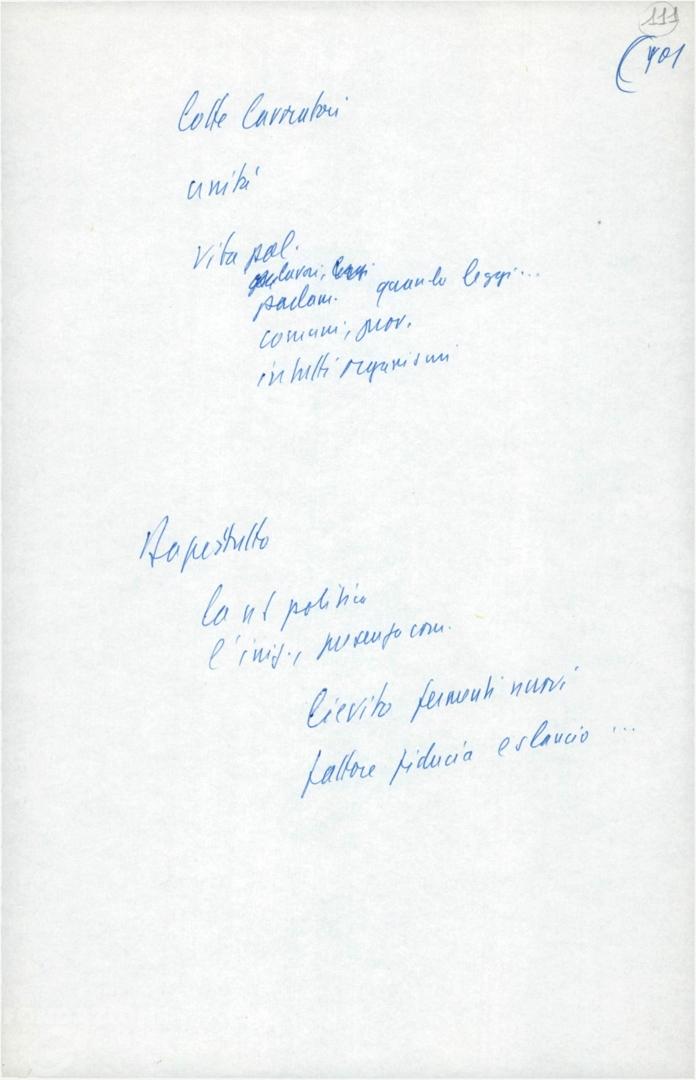 111
(401
lotte lavoratori
unità
vita pol.
parlam. quando leggi...
comuni, prov.
in tutti organismi
Dapertutto
la ns politica
l'iniz., presenza com.
lievito fermenti nuovi
fattore fiducia e slancio ...